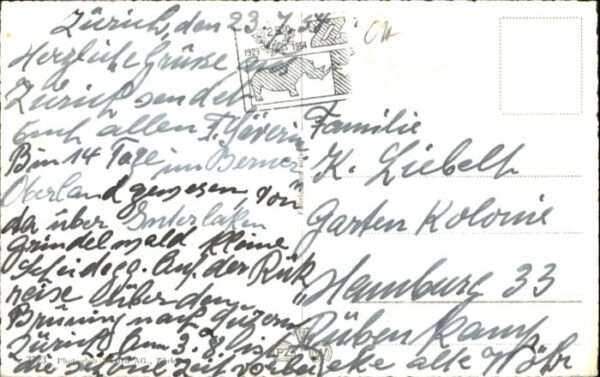 Zürich, den 23.7.54
Herzliche Grüsse aus
Zürich sendet
Euch allen
Bin 14 Tage im Berner
Oberland gewesen, von
da über Interlaken
Grindelwald kleine
Scheidegg. Auf der Rük
reise über den
Brünig nach Luzern
Zürich Am 3.8. ist
die schöne Zeit vorbei
1929 1954
Familie
K. Liebelt
Garten Kolonie
Hamburg 33
Rübenkamp
Ecke alte Wöhr